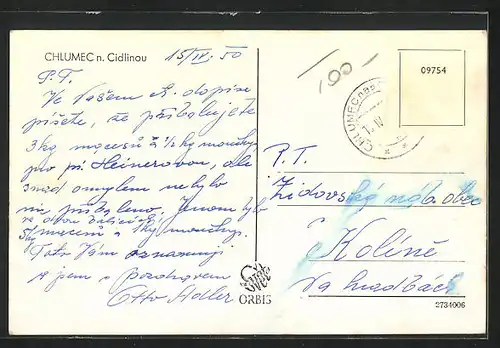 CHLUMEC n. Cidlinou
15/IV. 50
P.T.
Ve Vašem dopise
píšete, že přibalujete
3 kg macesů a 1/2 kg moučky
pro pí. Heinerovou, ale
snad omylem nebylo
nic přibaleno. Jenom
macesů a 1 kg moučky.
Toto Vám oznamuji
a jsem s pozdravem
Otto Adler
ORBIS
100
09754
CHLUMEC
P. T.
Židovská náb. obec
Kolíně
Na hradbách
2734006